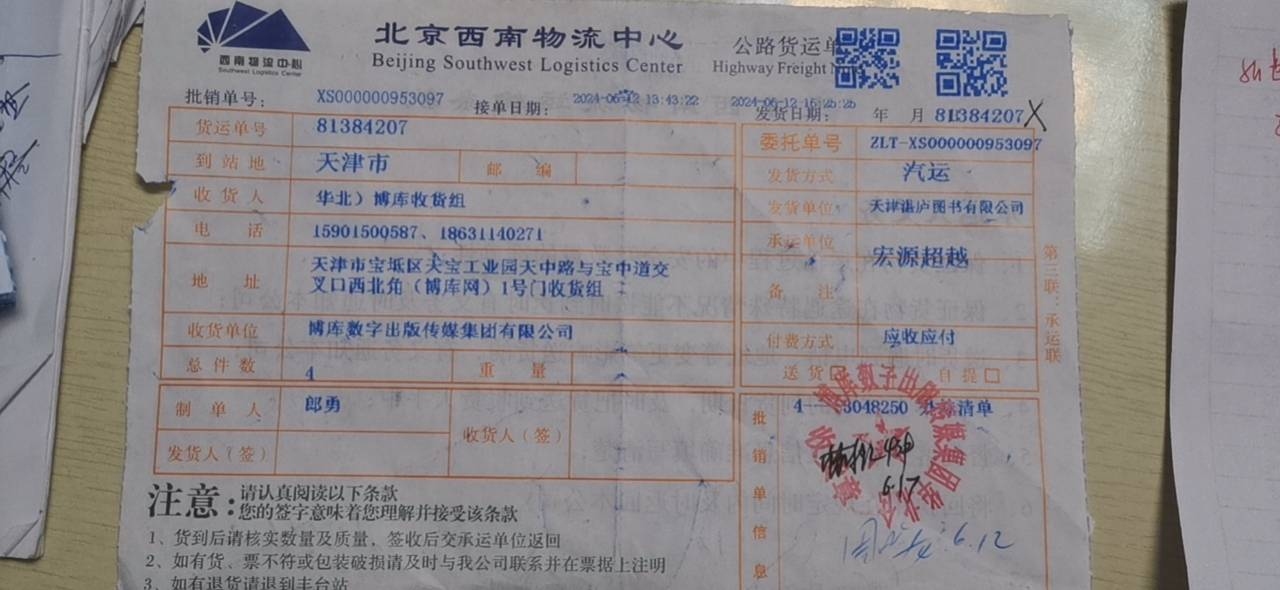 西南物流中心
Southwest Logistics Center
北京西南物流中心
Beijing Southwest Logistics Center
公路货运单
Highway Freight
批销单号: XS000000953097
接单日期: 2024-06-12 13:43:22
发货日期: 2024-06-12 16:26:26 年 月 81384207
货运单号 81384207
委托单号 ZLT-XS000000953097
到站地 天津市 邮编
发货方式 汽运
收货人 华北）博库收货组
发货单位 天津湛庐图书有限公司
电话 15901500587、18631140271
承运单位 宏源超越
地址 天津市宝坻区天宝工业园天中路与宝中道交
叉口西北角（博库网）1号门收货组
备注
收货单位 博库数字出版传媒集团有限公司
付费方式 应收应付
总件数 4 重量
送货 自提
制单人 郎勇
收货人（签）
发货人（签）
批销单信息
3048250
清单
4件
6.17
6.12
第三联：承运联
注意:
请认真阅读以下条款
您的签字意味着您理解并接受该条款
1、货到后请核实数量及质量，签收后交承运单位返回
2、如有货、票不符或包装破损请及时与我公司联系并在票据上注明
3、如有退货请退到丰台站